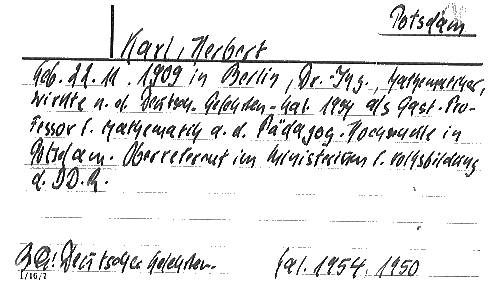 Potsdam
Karl, Herbert
Geb. 22. 11. 1909 in Berlin, Dr.-Ing., Mathematiker,
wirkte n. d. Deutsch. Gelehrten-Kal. 1954 als Gast-Pro-
fessor f. Mathematik a. d. Pädagog. Hochschule in
Potsdam. Oberreferent im Ministerium f. Volksbildung
d. DDR.
Deutscher Gelehrten- Kal. 1954, 1950